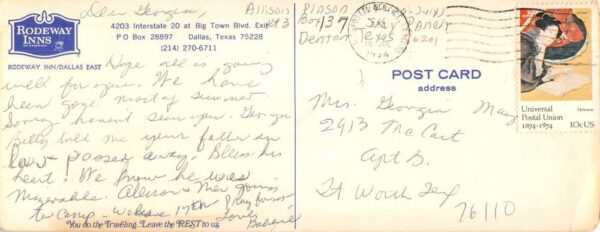 RODEWAY
INNS
OF AMERICA
4203 Interstate 20 at Big Town Blvd. Exit
P O Box 28897 Dallas, Texas 75228
(214) 270-6711
RODEWAY INN/DALLAS EAST
Dear Georgia
Hope all is going
well for you. We have
been gone most of summer
Sorry havent seen you. Georgia
told me your father in
law passed away. Bless his
heart. We know he was
Miserable. Allison &
to Camp - 
Love
You do the Traveling. Leave the REST to us.
Box 137
Denton, Texas
76201
1974
POST CARD
address
Mrs. Georgia May
2913 McCart
Apt
Ft Worth Tex
76110
Hokusai
Universal
Postal Union
1874-1974 10cUS